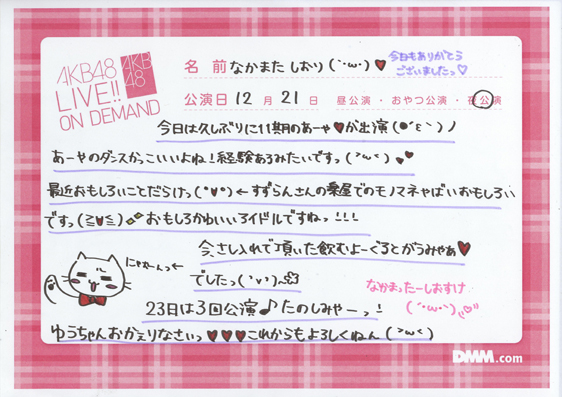 AKB48
LIVE!!
ON DEMAND
AKB
48
名 前 なかまた しおり (`・ω・´)♥
今日もありがとう
ございましたっ♡
公演日 12 月 21 日 昼公演・おやつ公演・夜公演
今日は久しぶりに11期のあーや♥が出演(●´ε｀)ノ
あーやのダンスかっこいいよね!経験あるみたいですっ(>ω<)♥♥
最近おもしろいことだらけっ(°∀°)←すずらんさんの楽屋でのモノマネやばいおもしろい
ですっ(≧∀≦)おもしろかわいいアイドルですねっ!!!
今、さし入れで頂いた飲むよーぐるとがうみやぁ♥
にゃーんっ←
でしたっ('∨')
なかまったーしおすけ
(`・ω・´)
23日は3回公演♪たのしみやーっ!
ゆうちゃんおかえりなさいっ♥♥♥これからもよろしくねん(>ω<)
DMM.com